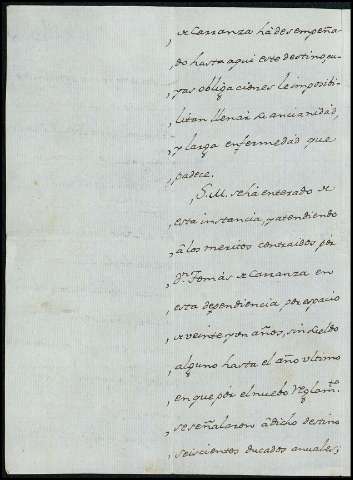 , de Carranza há desempeña-
do hasta aqui este destino, cu-
, yas obligaciones le imposibi-
, litan llenar su ancianidad,
, y larga enfermedad que
, padece.
, S. M. se há enterado de
, esta instancia, y atendiendo
, â los meritos contraidos pòr
, Dn. Tomás de Carranza en
, esta dependiencia por espacio
, de veinte y un años, sin sueldo
alguno hasta el año ultimo
, en que pòr el nuebo Reglamto.
, se señalaron â dicho destino
, seiscientos ducados anuales;